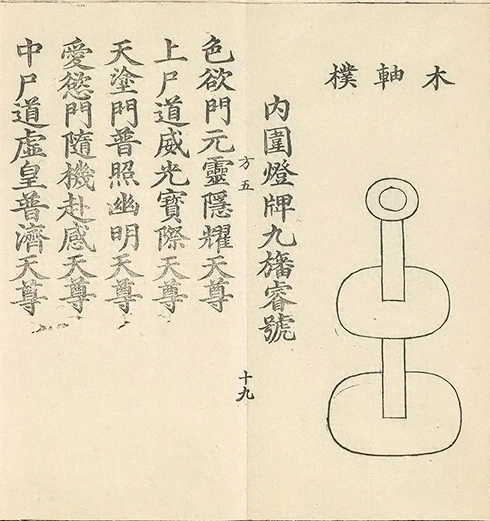 木軸樸
內圍燈牌九旛睿號
方五
十九
色欲門元靈隱耀天尊
上尸道威光寶際天尊
天塗門普照幽明天尊
愛慾門隨機赴感天尊
中尸道虛皇普濟天尊